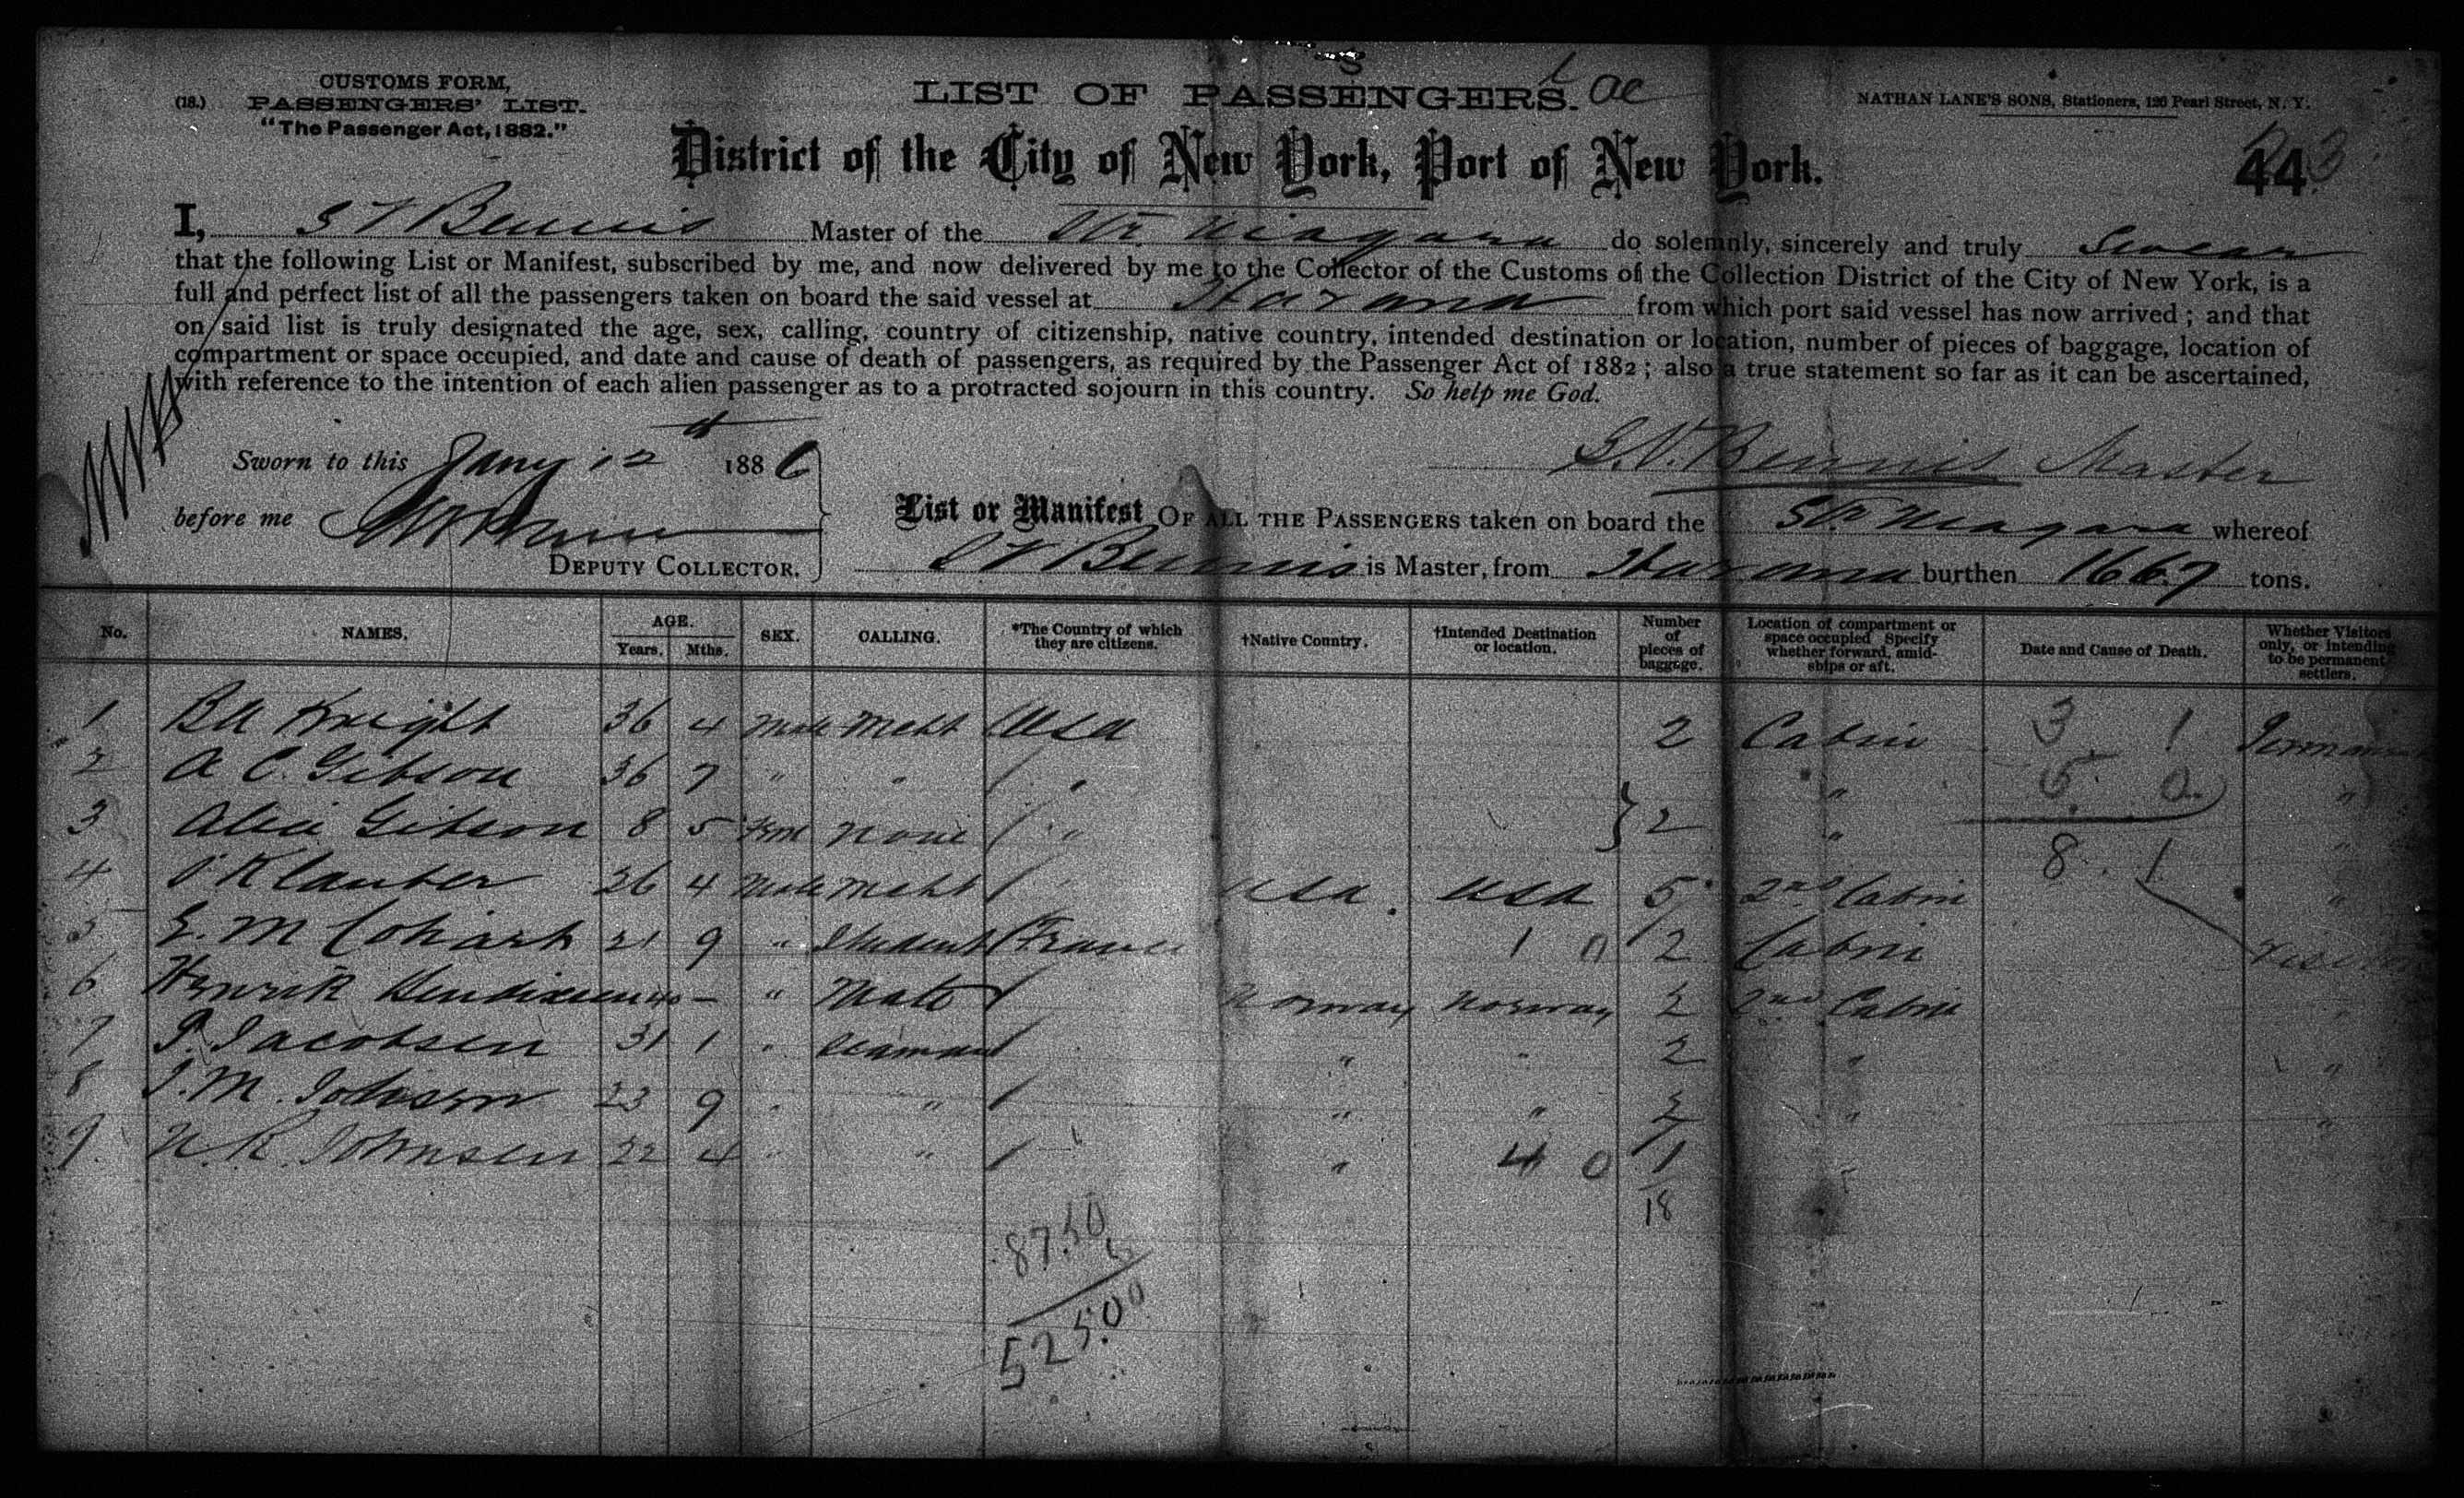 CUSTOMS FORM,
(18.) PASSENGERS' LIST.
"The Passenger Act, 1882."
LIST OF PASSENGERS.
NATHAN LANE'S SONS, Stationers, 126 Pearl Street, N. Y.
District of the City of New York, Port of New York.
44
I, S V Bennis Master of the Str. Niagara do solemnly, sincerely and truly Swear
that the following List or Manifest, subscribed by me, and now delivered by me to the Collector of the Customs of the Collection District of the City of New York, is a
full and perfect list of all the passengers taken on board the said vessel at Havana from which port said vessel has now arrived; and that
on said list is truly designated the age, sex, calling, country of citizenship, native country, intended destination or location, number of pieces of baggage, location of
compartment or space occupied, and date and cause of death of passengers, as required by the Passenger Act of 1882; also a true statement so far as it can be ascertained,
with reference to the intention of each alien passenger as to a protracted sojourn in this country. So help me God.
Sworn to this Jany 12th 1886
S.V. Bennis Master
before me
DEPUTY COLLECTOR.
List or Manifest OF ALL THE PASSENGERS taken on board the Str Niagara whereof
S V Bennis is Master, from Havana burthen 1667 tons.
No. NAMES. AGE. Years. Mths. SEX. CALLING. *The Country of which they are citizens. †Native Country. †Intended Destination or location. Number of pieces of baggage. Location of compartment or space occupied Specify whether forward, amidships or aft. Date and Cause of Death. Whether Visitors only, or intending to be permanent settlers.
1 B A Knight 36 4 Male Mcht USA 2 Cabin 3 1
2 A C. Gibson 36 7 " " " " 5 0 "
3 Alice Gibson 8 5 Fem None " 2 " 8 1 "
4 Klauber 26 4 Male Mcht " USA. USA 5 2nd Cabin "
5 E. M 21 9 " Student France 1 0 2 Cabin
6 Henrik Bendixen 40 - " Mate Norway Norway 2 2nd Cabin "
7 P. Jacobsen 31 1 " Seaman " " 2 " "
8 J. M. 23 9 " " " " 2 " "
9. N. R. Johnsen 22 4 " " " 4 0 1
18
87.50
6
525.00